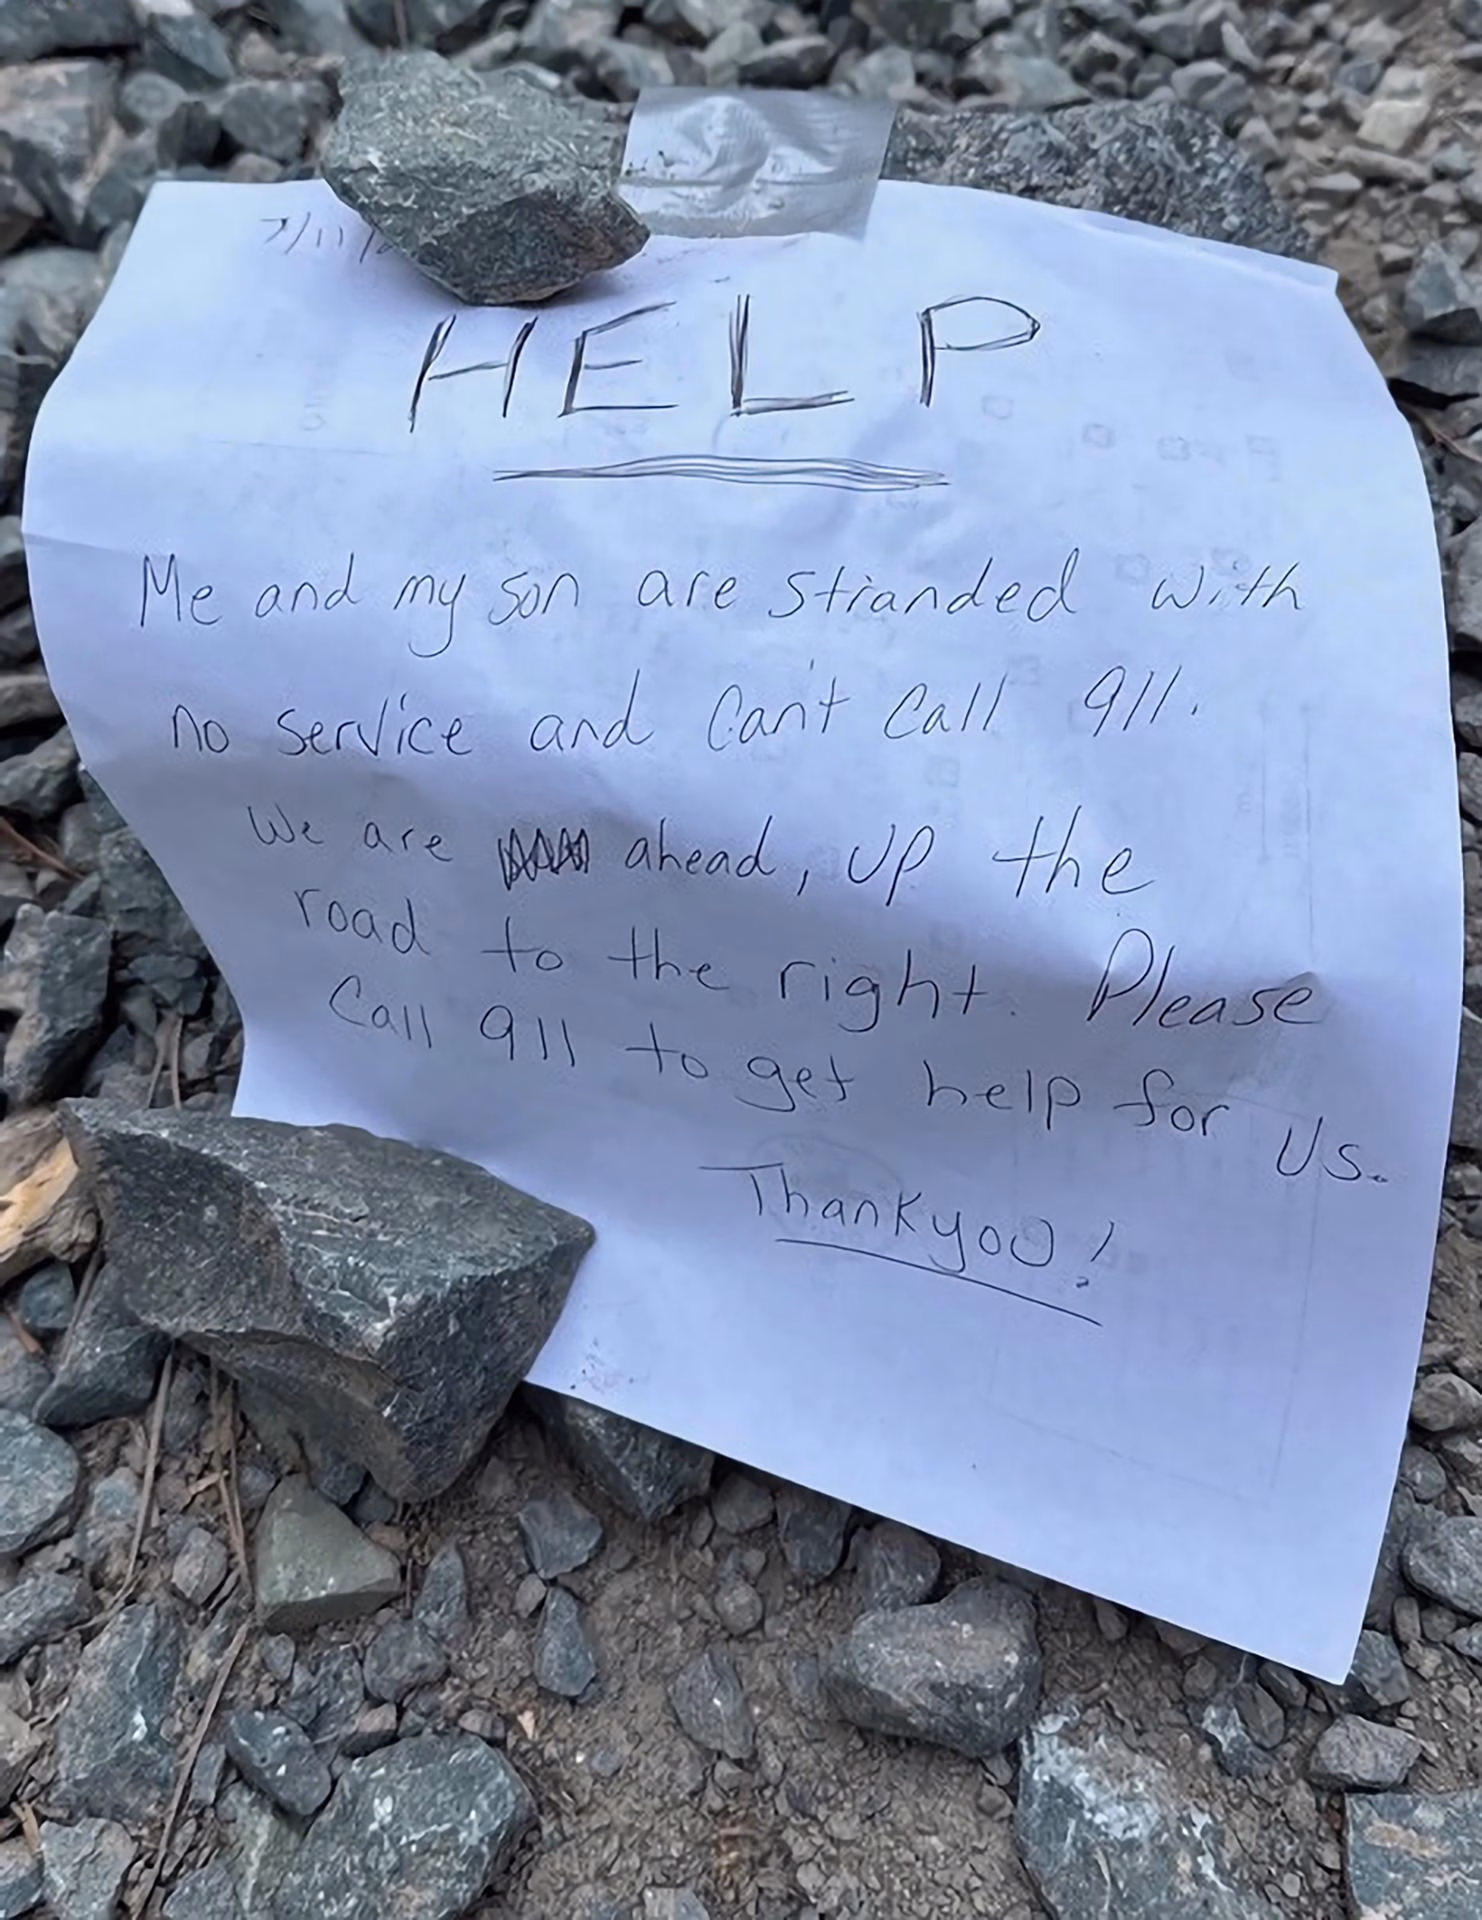 7/11/
HELP
Me and my son are stranded with
no service and can't call 911.
We are ahead, up the
road to the right. Please
Call 911 to get help for Us.
Thankyou!